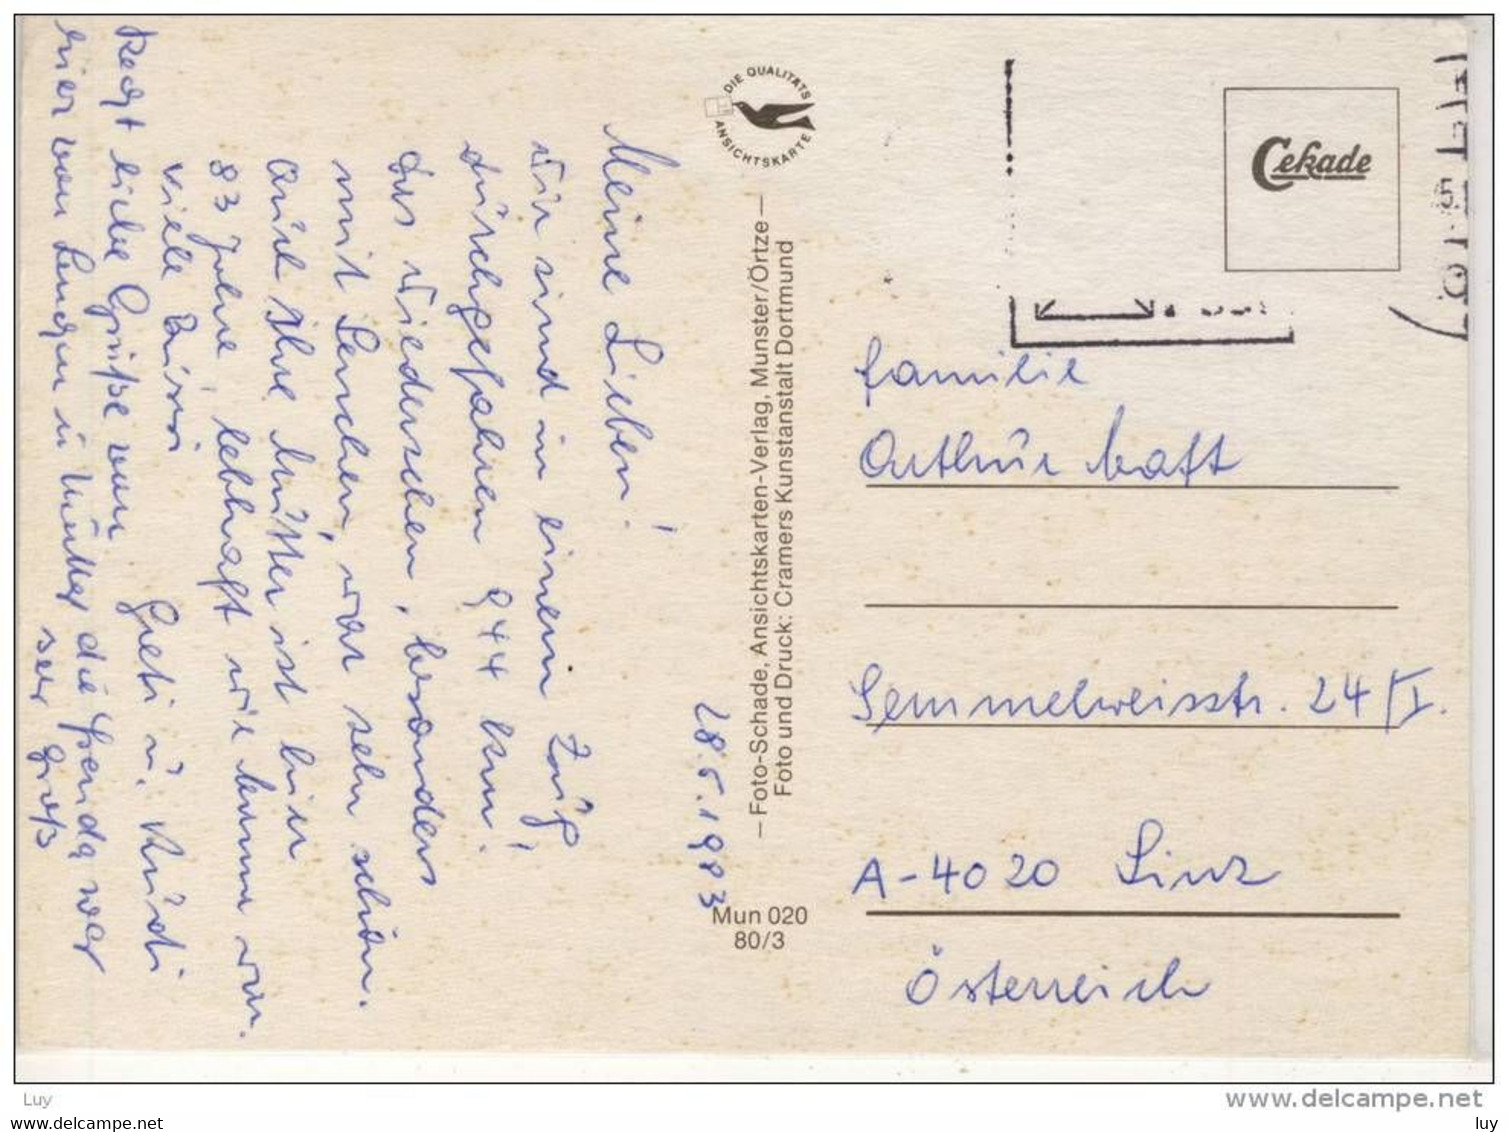 28.5.1983
Meine Lieben!
Wir sind in einem Zug,
durchgefahren 944 km!
Das Wiedersehen, besonders
mit Lenchen, war sehr schön.
Auch Ihre Mutter ist hier
83 Jahre, lebhaft wie immer
viele Bussi
Recht liebe Grüße von Greti u. Rudi
hier von Lenchen u Mutter die Freude war
sehr groß
DIE QUALITÄTS
ANSICHTSKARTE
– Foto-Schade, Ansichtskarten-Verlag, Munster/Örtze –
Foto und Druck: Cramers Kunstanstalt Dortmund
Mun 020
80/3
Cekade
Familie
Arthur
Semmelweisstr. 24/I.
A-4020 Linz
Österreich
Luy
www.delcampe.net
luy
luy